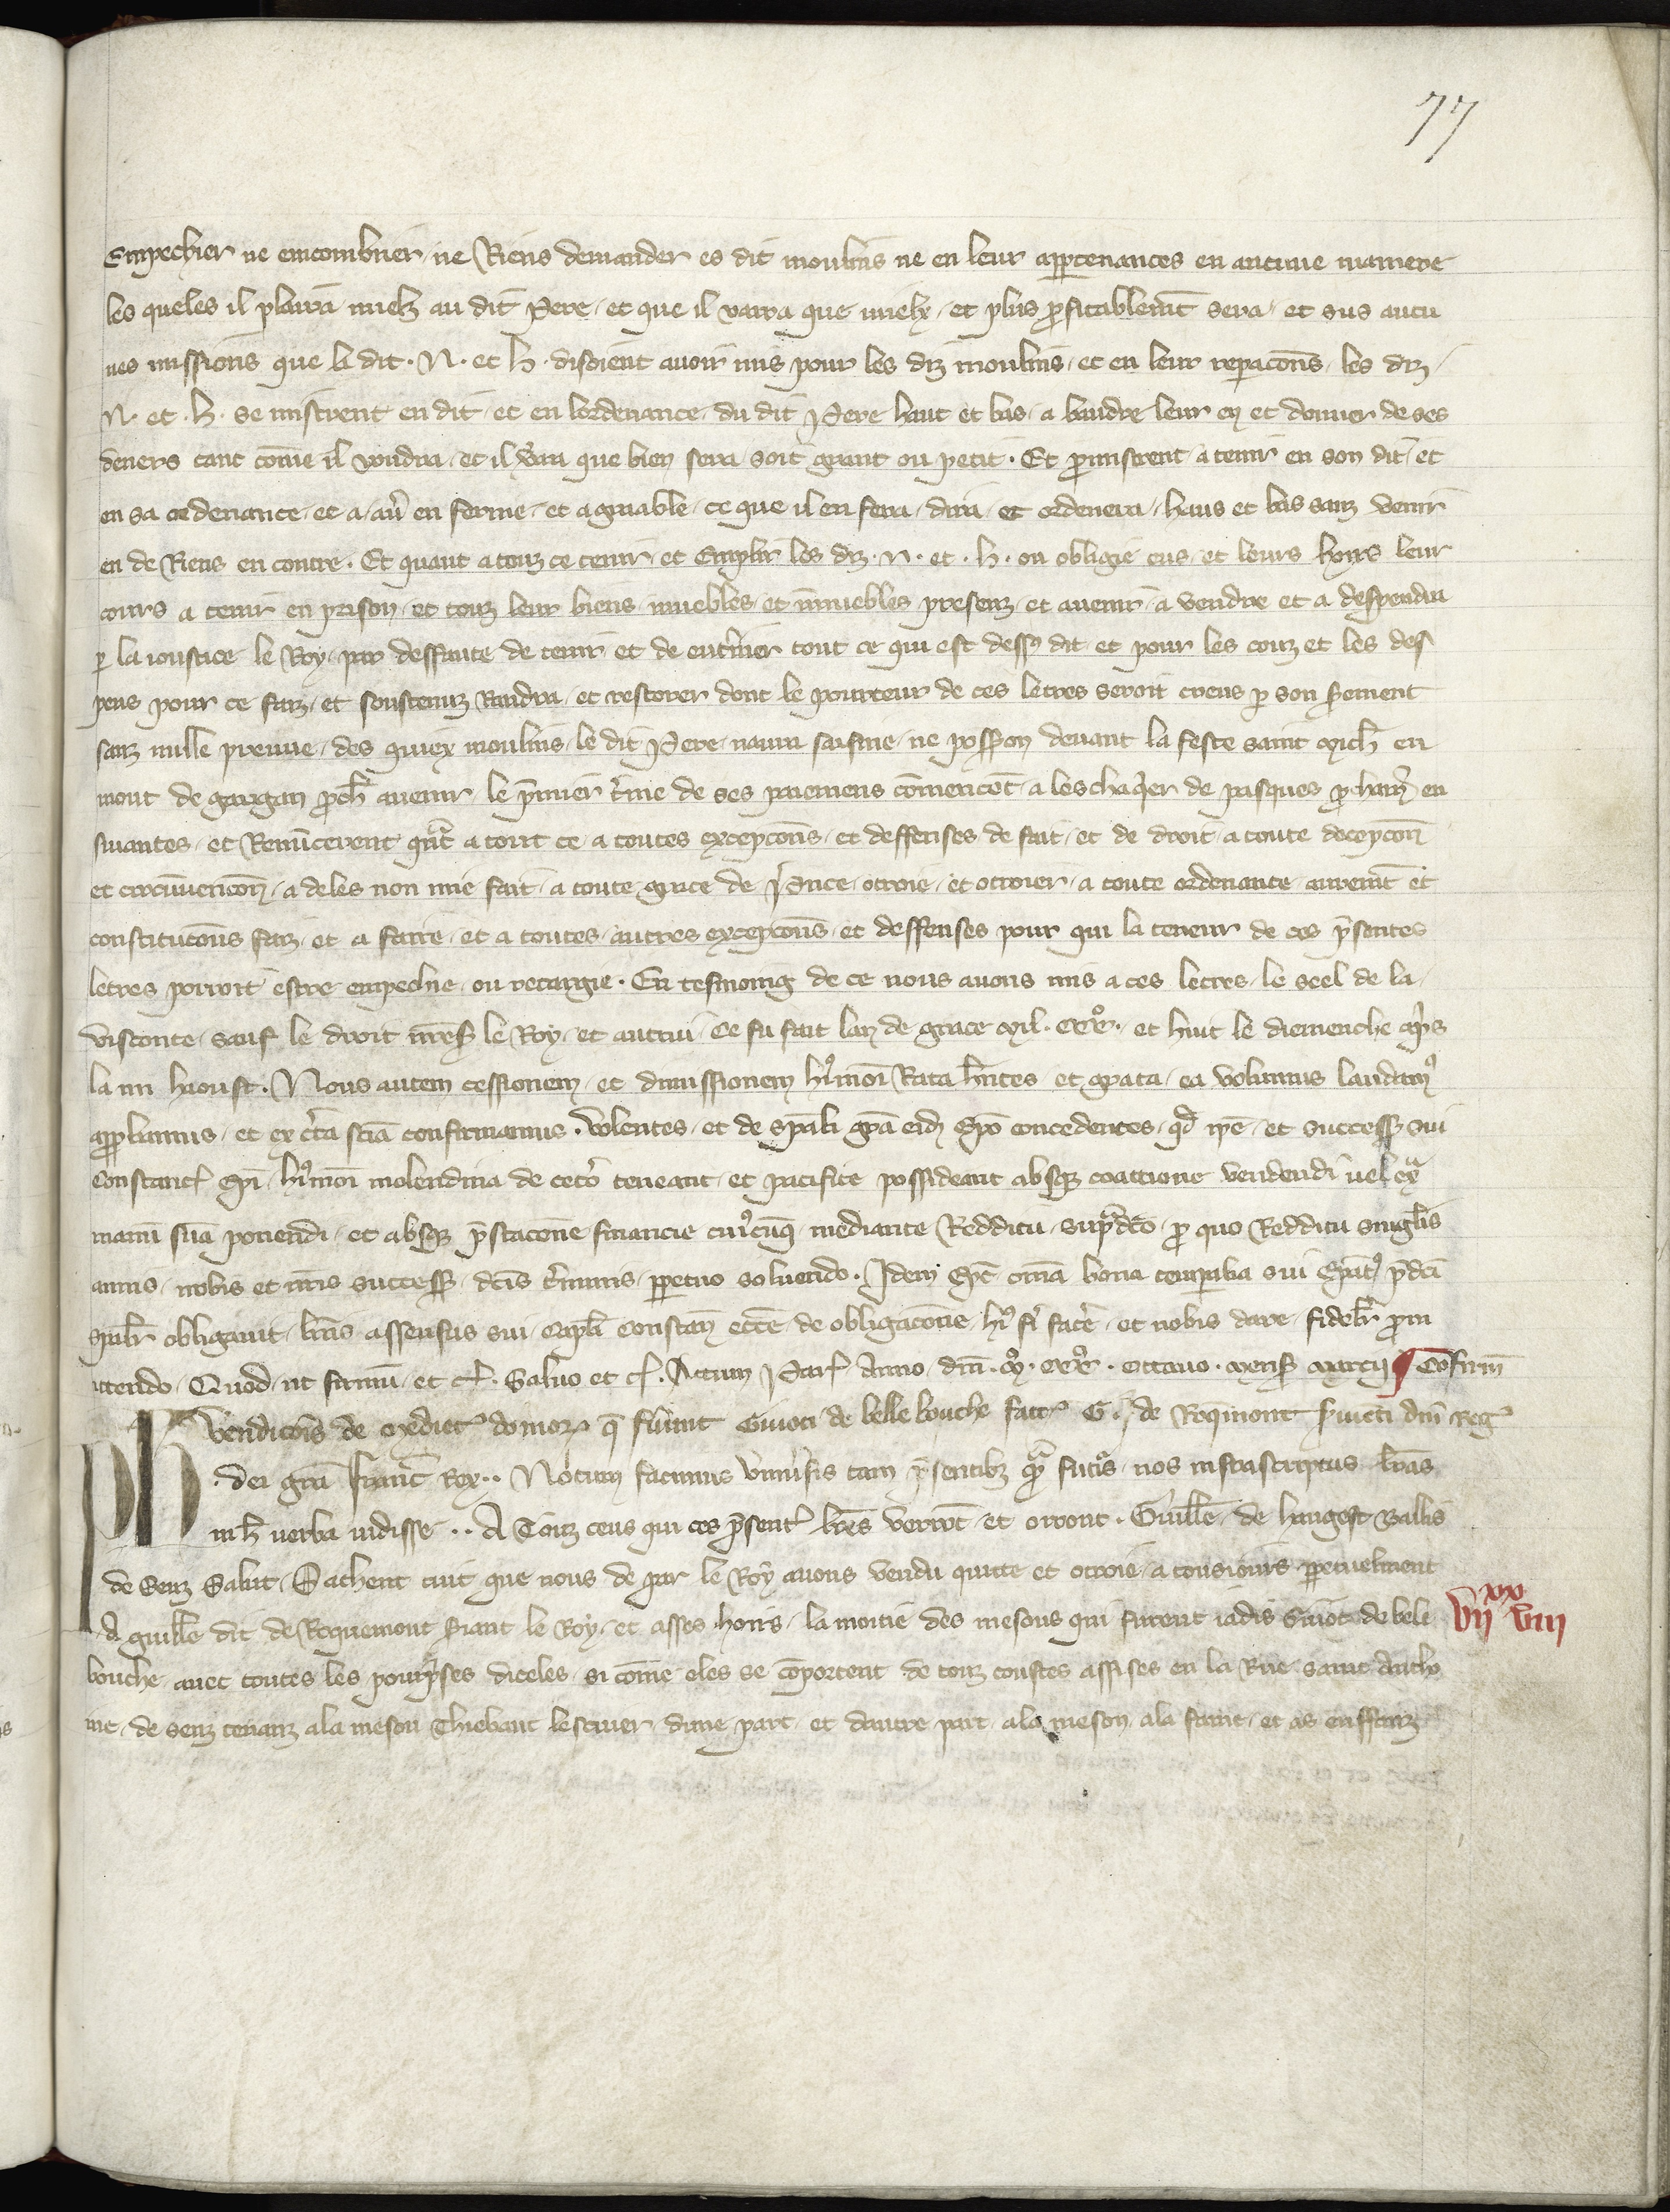 77
Empechier ne encombrier ne Riens demander es dit moulins ne en leur apptenances en aucune maniere
les queles il plaira mielz au dit Pere et que il varra que mielx et plus ꝓfitablemẽt sera et sus aucu
nes missions que li dit . N . et H . disoient avoir mis pour les dz moulins et en leur repacõns les dz
N . et . H . se mistrent en dit et en lordenance du dit Pere haut et bas a baudre leur en et donner de ses
deners tant cõme il voudra et il verra que bien sera soit grant ou petit . Et ꝓmistrent a tenir en son dit et
en sa ordenance et a avr en ferme et agreable ce que il en fera dira et ordenera haus et bas sanz venir
en de Riens en contre . Et quant a touz ce tenir et Emplir les dz . N . et . H . on obligie eus et leurs hoirs leur
cours a tenir en prison et touz leur biens muebles et immuebles presenz et avenir a vendre et a despendre
p la ioustice le Roy par deffaute de tenir et de entiner tout ce qui est dess9 dit et pour les couz et les des
pens pour ce faiz et soustenuz Rendre et restorer dont le pourteur de ces letres seroit creus p son seement
sanz nulle preuue des quiex moulins le dit Pere naura saisine ne possion devant la feste saint Mich en
mont de gargan ꝓch avenir le pmier tme de ses paiemens cõmencet a leschaqer de pasques ꝓchain en
suiantes et Renuncerent qnt a tout ce a toutes excepcõns et deffenses de fait et de droit a toute decepcõn
et circũuencõn a deles non mie fait a toute grace de Prince otroie et otroier a toute ordenance airemt et
constitucõns faiz et a faire et a toutes autres excepcõns et deffenses pour qui la teneur de ces p̃sentes
letres porroit estre empechie ou retargie . En tesmoing de ce nous avons mis a ces lectres le seel de la
visconte sauf le droit nr̃es le Roy et autrui Ce fu fait lan de grace Mil . CCCo . et huit le diemenche apres
la mi haoust . Nous autem cessionem et dimissionem h9moi Rata h̃ntes et grata ea volumus laudam9
approbamus et ex c̃ta sciã confirmamus . Volentes et de spali gr̃a eidz Ep̃o concedentes qd ip̃e et success sui
Constanc Ep̃i h9moi molendina de ceto teneant et pacifice possideant absqz coactione vendendi vel exa
manũ suã ponendi et absqz p̃stacõne financie cui9cũqz mediante Redditu supadco ꝓ quo Redditu singlis
annis nobis et nr̃is success dcis t̃minis ppetuo solvendo . Idem Ep̃c om̃a bona tempalia sui Ep̃at9 p̃dci
spalr obligavit lras assensus sui capli Constan ecc̃e de obligacõne h9 fi fac̃e et nobis dare fidelr ꝓm
ittendo . Quod ut firmũ et c̃ . Salvo et c̃ . Actum Paris Anno dn̄i . Mo . CCCo . Octavo . mense Marcij ¶ Cõfirm
vendicõis de medietate domoz q̃ fũunt Guioti de belle bouche facte G . de Roqmont ṡvieti dn̄i Reg
Ph dei gr̃a Franc Rex . . Notum facimus univsis tam p̃sentibz qa futis nos infrascriptas lras
in h verba vidisse . . A Touz ceus qui ces p̃sent lres verrõt et orront . Guille de hangest Baillis
de Senz Salut . Sachent tuit que nous de par le Roy avons vendu quitte et otroie a tousiours ppetuelment
A guille dit de Roquemont Siant le Roy et asses hoirs la moitie des mesons qui furent iadis Guiot de bele VIIxx VIII
bouche avec toutes les pourp̃ses diceles si cõme eles se cõportent de touz coustes assises en la Rue saint Anth
ine de senz tenanz a la meson Thiebaut lescuier dune part et dautre part a la meson a la famt et as enffanz